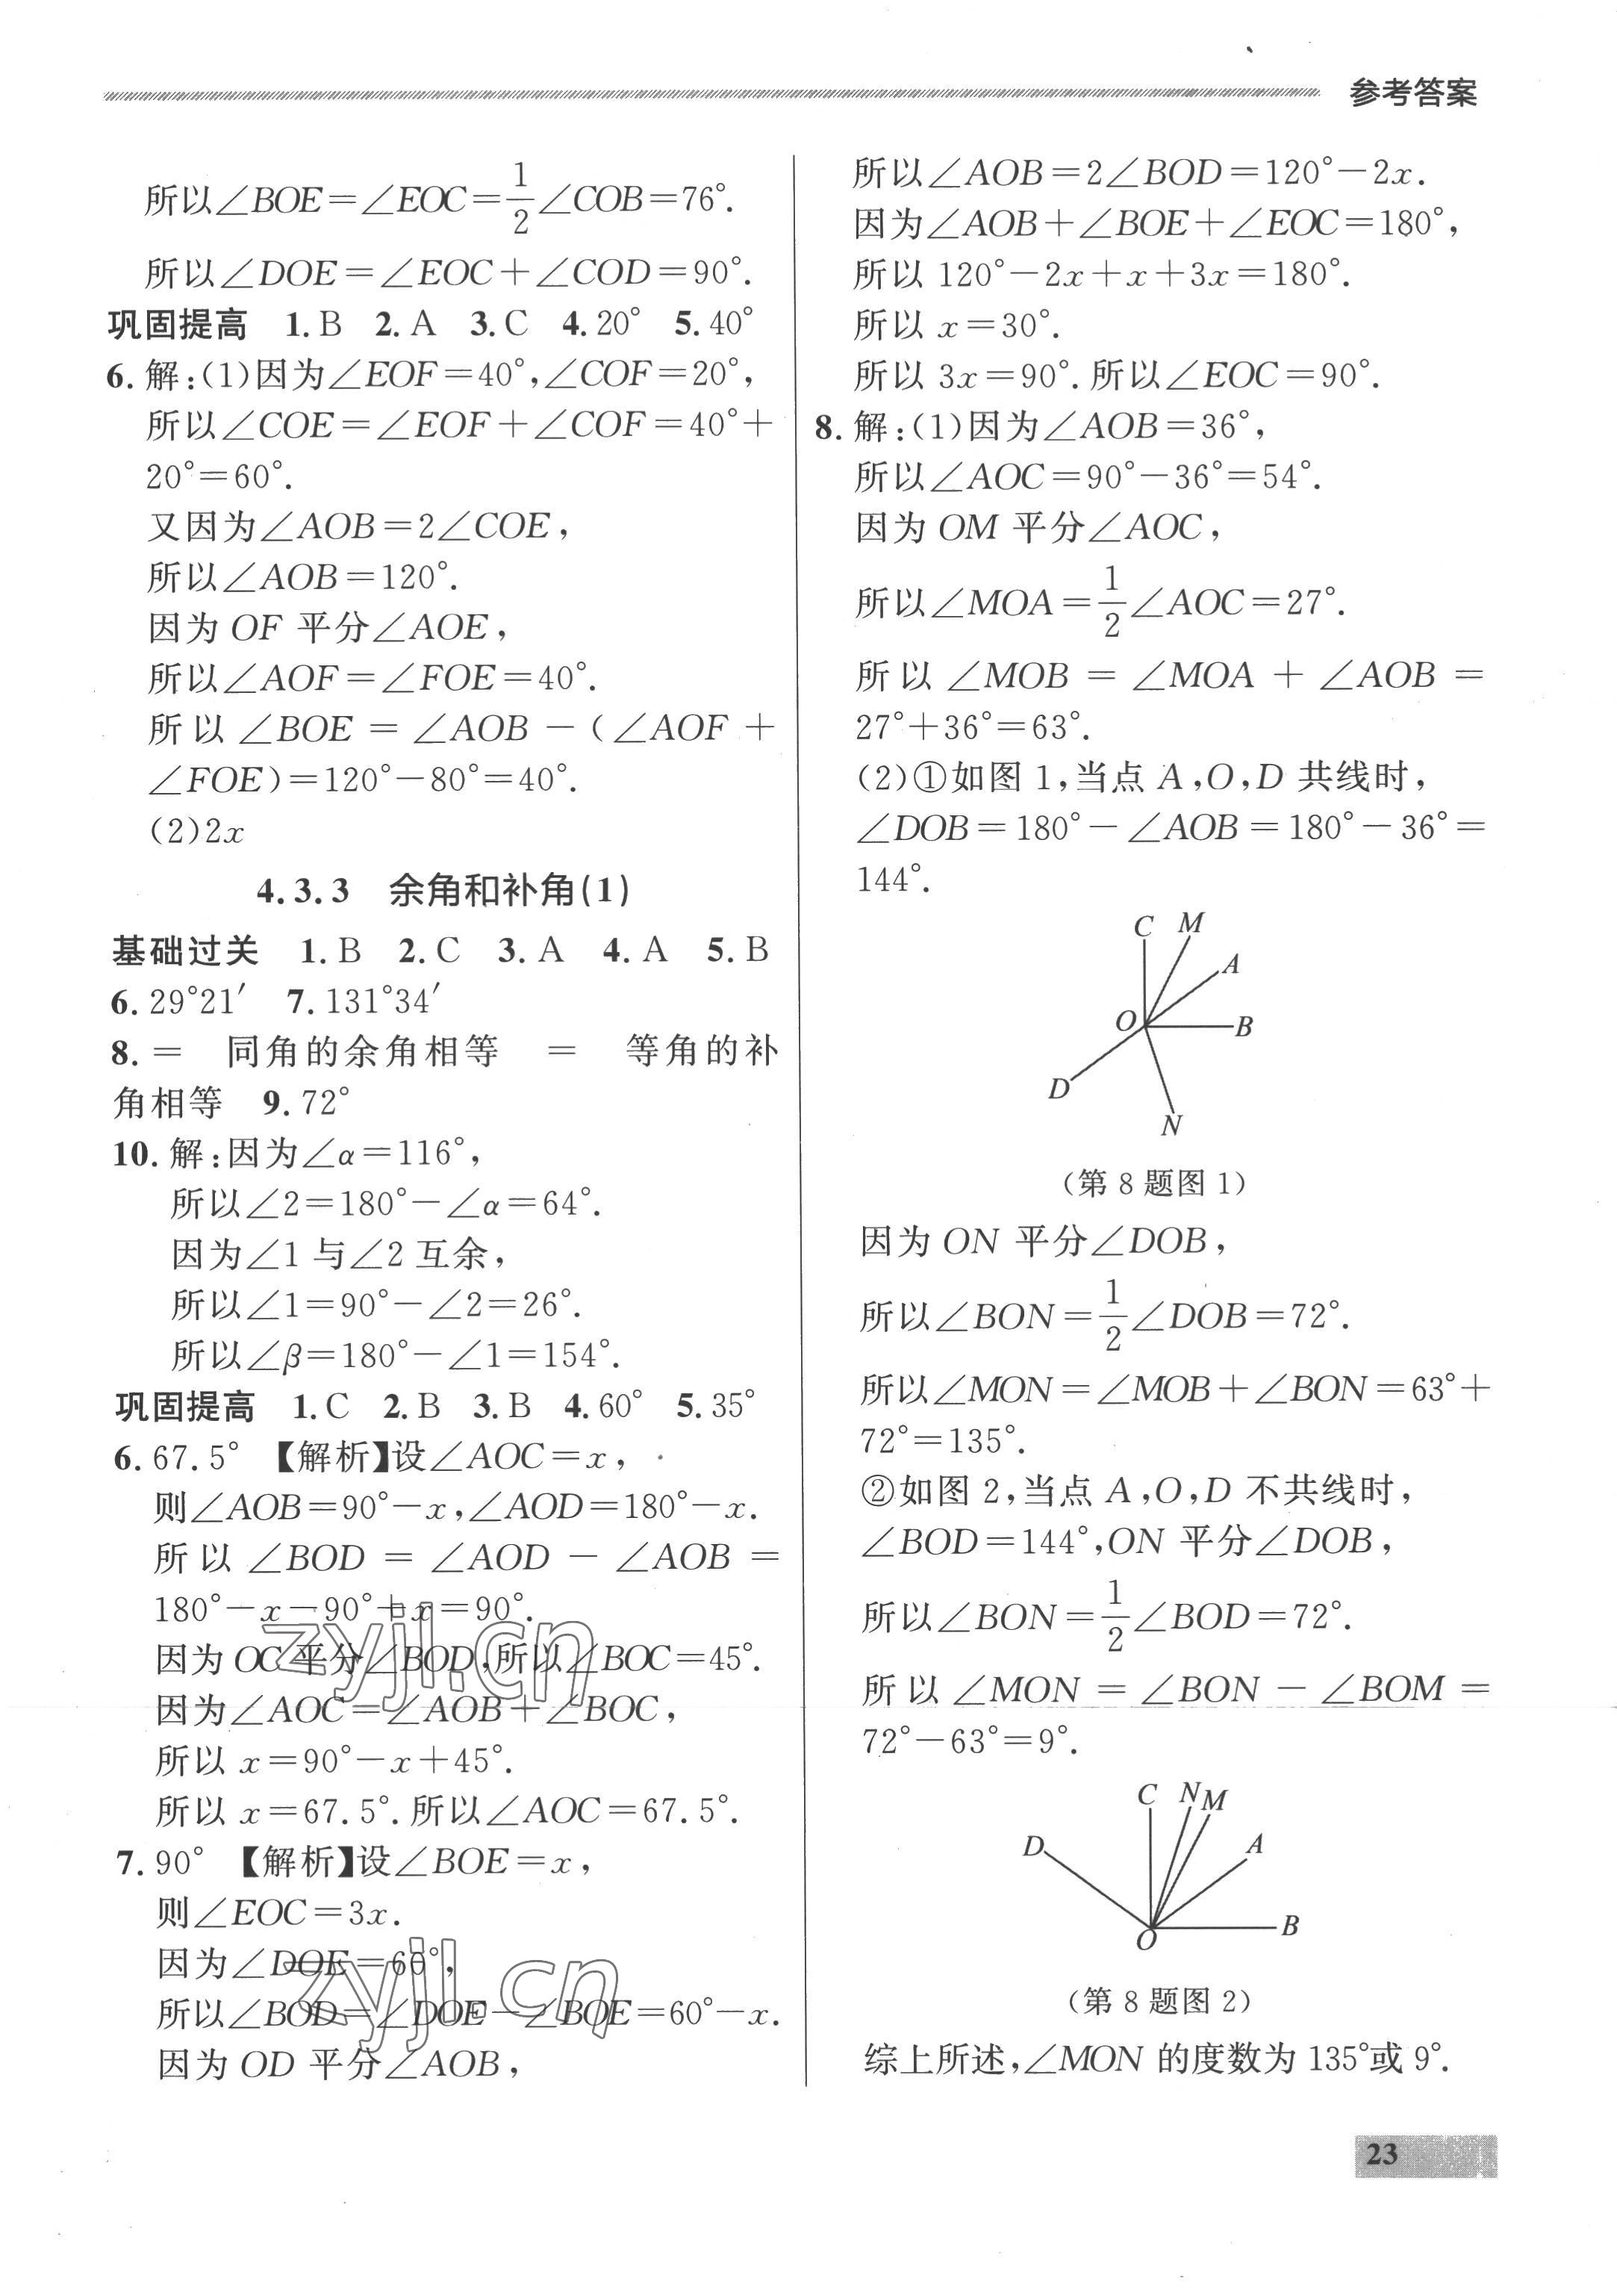 参考答案
所以∠BOE=∠EOC=1/2∠COB=76°.
所以∠DOE=∠EOC+∠COD=90°.
巩固提高 1.B 2.A 3.C 4.20° 5.40°
6.解:(1)因为∠EOF=40°,∠COF=20°,
所以∠COE=∠EOF+∠COF=40°+
20°=60°.
又因为∠AOB=2∠COE,
所以∠AOB=120°.
因为 OF 平分∠AOE,
所以∠AOF=∠FOE=40°.
所以∠BOE=∠AOB-(∠AOF+
∠FOE)=120°-80°=40°.
(2)2x
4.3.3 余角和补角(1)
基础过关 1.B 2.C 3.A 4.A 5.B
6.29°21′ 7.131°34′
8.= 同角的余角相等 = 等角的补
角相等 9.72°
10.解:因为∠α=116°,
所以∠2=180°-∠α=64°.
因为∠1 与∠2 互余,
所以∠1=90°-∠2=26°.
所以∠β=180°-∠1=154°.
巩固提高 1.C 2.B 3.B 4.60° 5.35°
6.67.5° 【解析】设∠AOC=x,
则∠AOB=90°-x,∠AOD=180°-x.
所以∠BOD=∠AOD-∠AOB=
180°-x-90°+x=90°.
因为 OC 平分∠BOD,所以∠BOC=45°.
因为∠AOC=∠AOB+∠BOC,
所以 x=90°-x+45°.
所以 x=67.5°.所以∠AOC=67.5°.
7.90° 【解析】设∠BOE=x,
则∠EOC=3x.
因为∠DOE=60°,
所以∠BOD=∠DOE-∠BOE=60°-x.
因为 OD 平分∠AOB,
zyjl.cn
zyjl.cn
所以∠AOB=2∠BOD=120°-2x.
因为∠AOB+∠BOE+∠EOC=180°,
所以 120°-2x+x+3x=180°.
所以 x=30°.
所以 3x=90°.所以∠EOC=90°.
8.解:(1)因为∠AOB=36°,
所以∠AOC=90°-36°=54°.
因为 OM 平分∠AOC,
所以∠MOA=1/2∠AOC=27°.
所以∠MOB=∠MOA+∠AOB=
27°+36°=63°.
(2)①如图 1,当点 A,O,D 共线时,
∠DOB=180°-∠AOB=180°-36°=
144°.
C M
A
O B
D
N
(第 8 题图 1)
因为 ON 平分∠DOB,
所以∠BON=1/2∠DOB=72°.
所以∠MON=∠MOB+∠BON=63°+
72°=135°.
②如图 2,当点 A,O,D 不共线时,
∠BOD=144°,ON 平分∠DOB,
所以∠BON=1/2∠BOD=72°.
所以∠MON=∠BON-∠BOM=
72°-63°=9°.
C N M
D A
O B
(第 8 题图 2)
综上所述,∠MON 的度数为 135°或 9°.
23